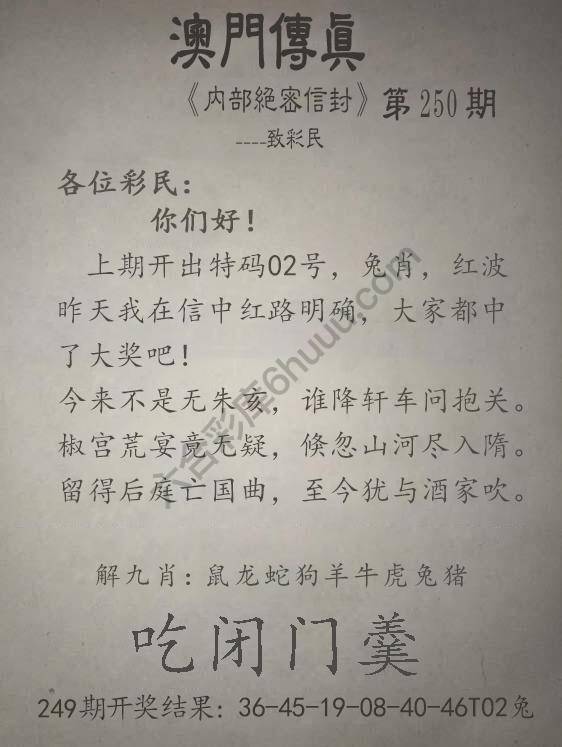 澳門傳眞
《內部絕密信封》第250期
----致彩民
各位彩民：
你们好！
上期开出特码02号，兔肖，红波
昨天我在信中红路明确，大家都中
了大奖吧！
今来不是无朱亥，谁降轩车问抱关。
椒宫荒宴竟无疑，倏忽山河尽入隋。
留得后庭亡国曲，至今犹与酒家吹。
解九肖：鼠龙蛇狗羊牛虎兔猪
吃闭门羹
249期开奖结果：36-45-19-08-40-46T02兔
六合彩库6huuu.com